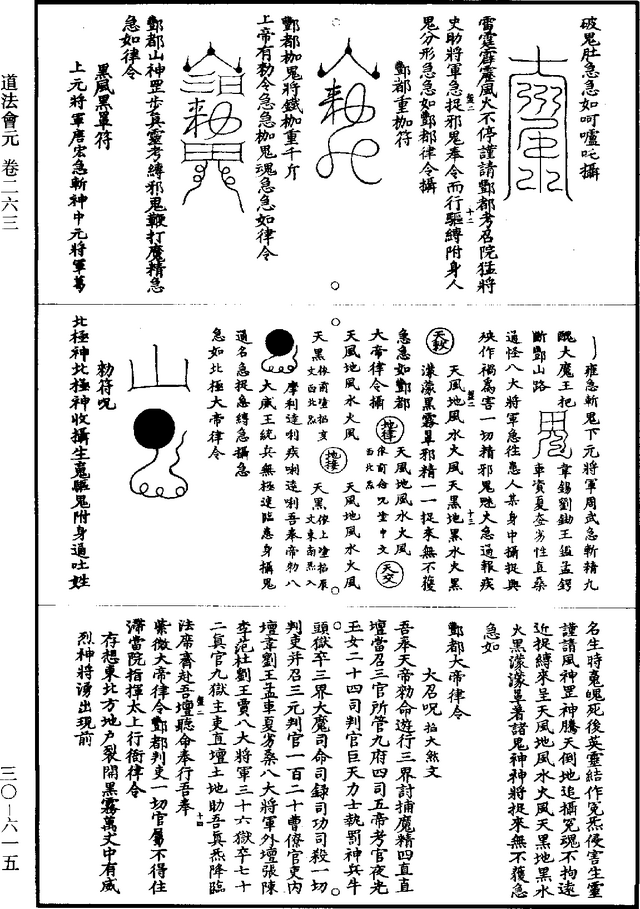 破鬼肚急急如呵嚧吒攝
雷霆霹靂風火不停謹請酆都考召院猛將
史助將軍急捉邪鬼奉令而行驅縛附身人
鬼分形急急如酆都律令攝
酆都重枷符
酆都枷鬼將鐵枷重千斤
上帝有勑令急急枷鬼魂急急如律令
酆都山神罡步真靈考縛邪鬼鞭打魔精急
急如律令
黑風黑罩符
上元將軍唐宏急斬神中元將軍葛
雍急斬鬼下元將軍周武急斬精九
醜大魔王把
斷酆山路
韋錫劉鋤王盌孟鍔
車資夏夌劣性直桑
通怪八大將軍急往患人某身中攝捉與
殃作禍為害一切精邪鬼魅火急通報疾
天地風水火風天黑地黑水火黑
濛濛黑霧罩邪精一一捉來無不獲
急急如酆都
大帝律令攝
天風地風水火風
天風地風水火風
天風地風水火風
摩利達利疾唎達唎吾奉帝勑八
大威王統兵無極速臨患身攝鬼
通名急捉急縛急攝急
急如北極大帝律令
勑符呪
北極神北極神收攝生魂驅鬼附身逼吐姓
名生時魂魄死後英靈結作冤炁侵害生靈
謹請風神罡神騰天倒地追攝冤魂不拘遠
近捉縛來呈天風地風水火風天黑地黑水
火黑濛濛罩著諸鬼神神將捉來無不獲急
急如
酆都大帝律令
大召呪
掐大煞文
吾奉天帝勑命遊行三界討捕魔精四直直
壇當召三官所管九府四司五帝考官夜光
玉女二十四司判官巨天力士執罰神兵牛
頭獄卒三界大魔司命司錄司功司殺一切
判吏并召三元判官一百二十曹僚官吏內
壇韋劉王孟車夏劣桑八大將軍外壇張陳
李范杜劉王賈八大將軍三十六獄卒七十
二真官九獄主吏直壇土地助吾真炁降臨
法席齋赴吾壇聽命奉行吾奉
紫微大帝律令酆都判吏一切官屬不得住
滯當院指揮太上行銜律令
存想東北方地戶裂開黑霧萬丈中有威
烈神將湧出現前
道法會元 卷二六三
三〇—六一五